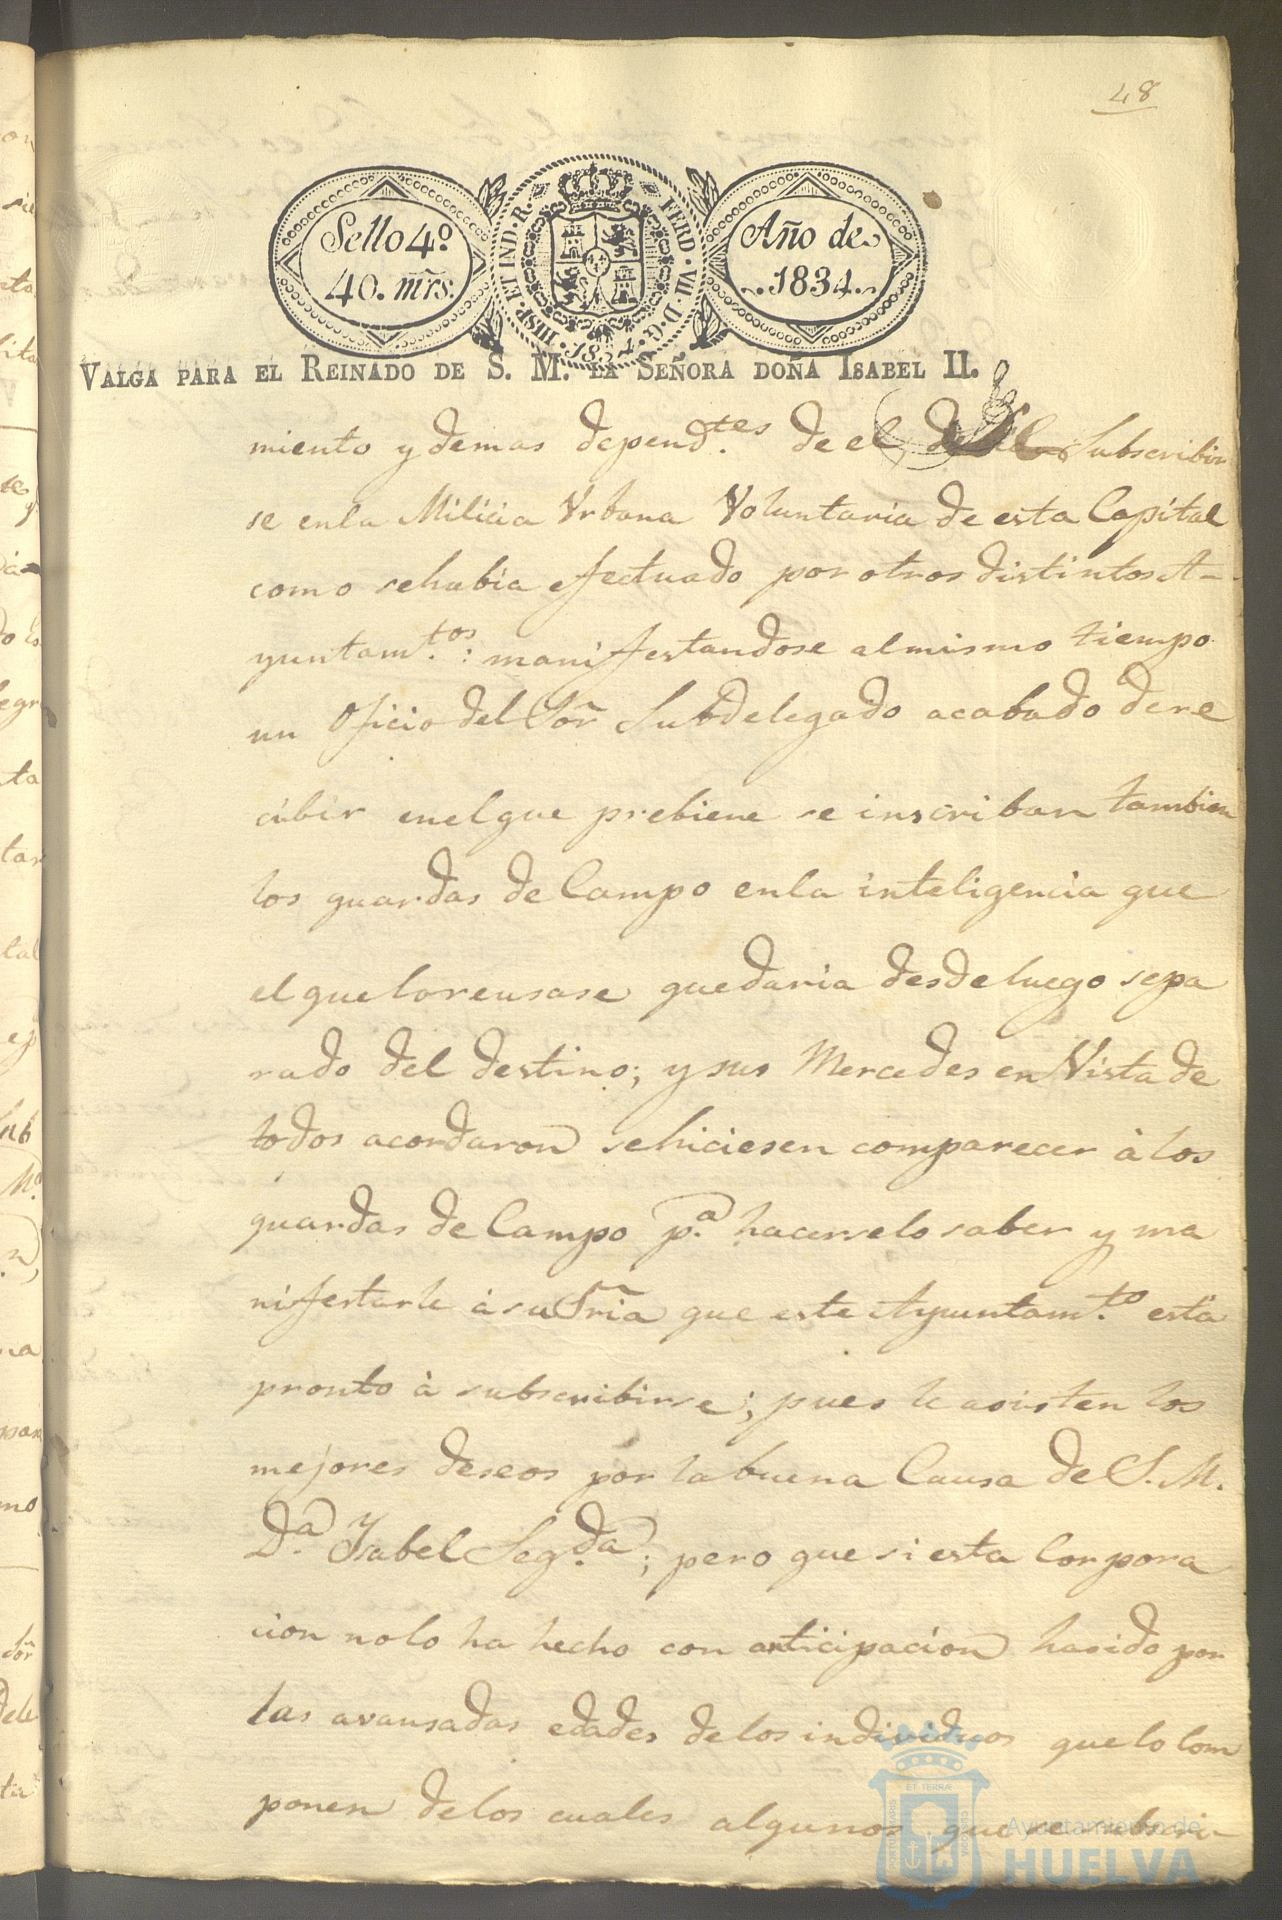 48
Sello 4º
40. mrs.
HISP. ET IND. R. FERD. VII. D. G. 1834.
Año de
1834.
VALGA PARA EL REINADO DE S. M. LA SEÑORA DOÑA ISABEL II.
miento y demas depend.tes de el Subscribir
se enla Milicia Vrbana Voluntaria de esta Capital
como sehabia efectuado por otros distintos A-
yuntam.tos: manifestandose almismo tiempo
un Oficio del Sor Subdelegado acabado dere
cibir enelque prebiene se inscriban tambien
los guardas de Campo enla inteligencia que
elqueloreusase quedaria desdeluego sepa
rado del destino; y sus Mercedes en Vista de
todos acordaron sehiciesen comparecer à los
guardas de Campo p.a hacerselo saber y ma
nifestarle à su Sria que este Ayuntam.to está
pronto à subscribirse; pues le asisten los
mejores deseos por la buena Causa de S. M.
D.a Ysabel Seg.da; pero que si esta Corpora
cion nolo ha hecho con anticipacion hasido por
las avansadas edades de los individuos que lo Com
ponen delos cuales algunos que se subscri-
ET TERRÆ
Ayuntamiento de
HUELVA